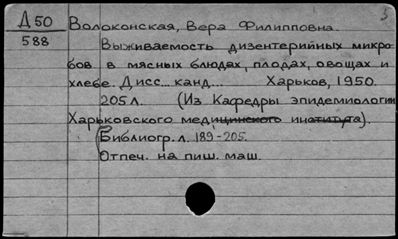 Д50
588
3
Волоконская, Вера Филипповна.
Выживаемость дизентерийных микро-
бов в мясных блюдах, плодах, овощах и
хлебе. Дисс... канд... Харьков, 1950.
205 л. (Из Кафедры эпидемиологии
Харьковского медицинского института).
(Библиогр. л. 189-205.
Отпеч. на пиш. маш.